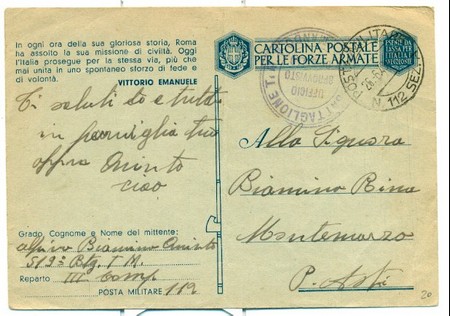 In ogni ora della sua gloriosa storia, Roma
ha assolto la sua missione di civiltà. Oggi
l'Italia prosegue per la stessa via, più che
mai unita in uno spontaneo sforzo di fede e
di volontà.
VITTORIO EMANUELE
Ti saluti do e tutti
in famiglia tuo
Aminto
ciao
Grado, Cognome e Nome del mittente:
Biamino Aminto
512º Btg. T. M.
Reparto III Comp
POSTA MILITARE 112
CARTOLINA POSTALE
PER LE FORZE ARMATE
UFFICIO
POSTA MILITARE
N. 112 SEZ.
Alla Signora
Biamino Rina
Montemarzo
P. Asti
20